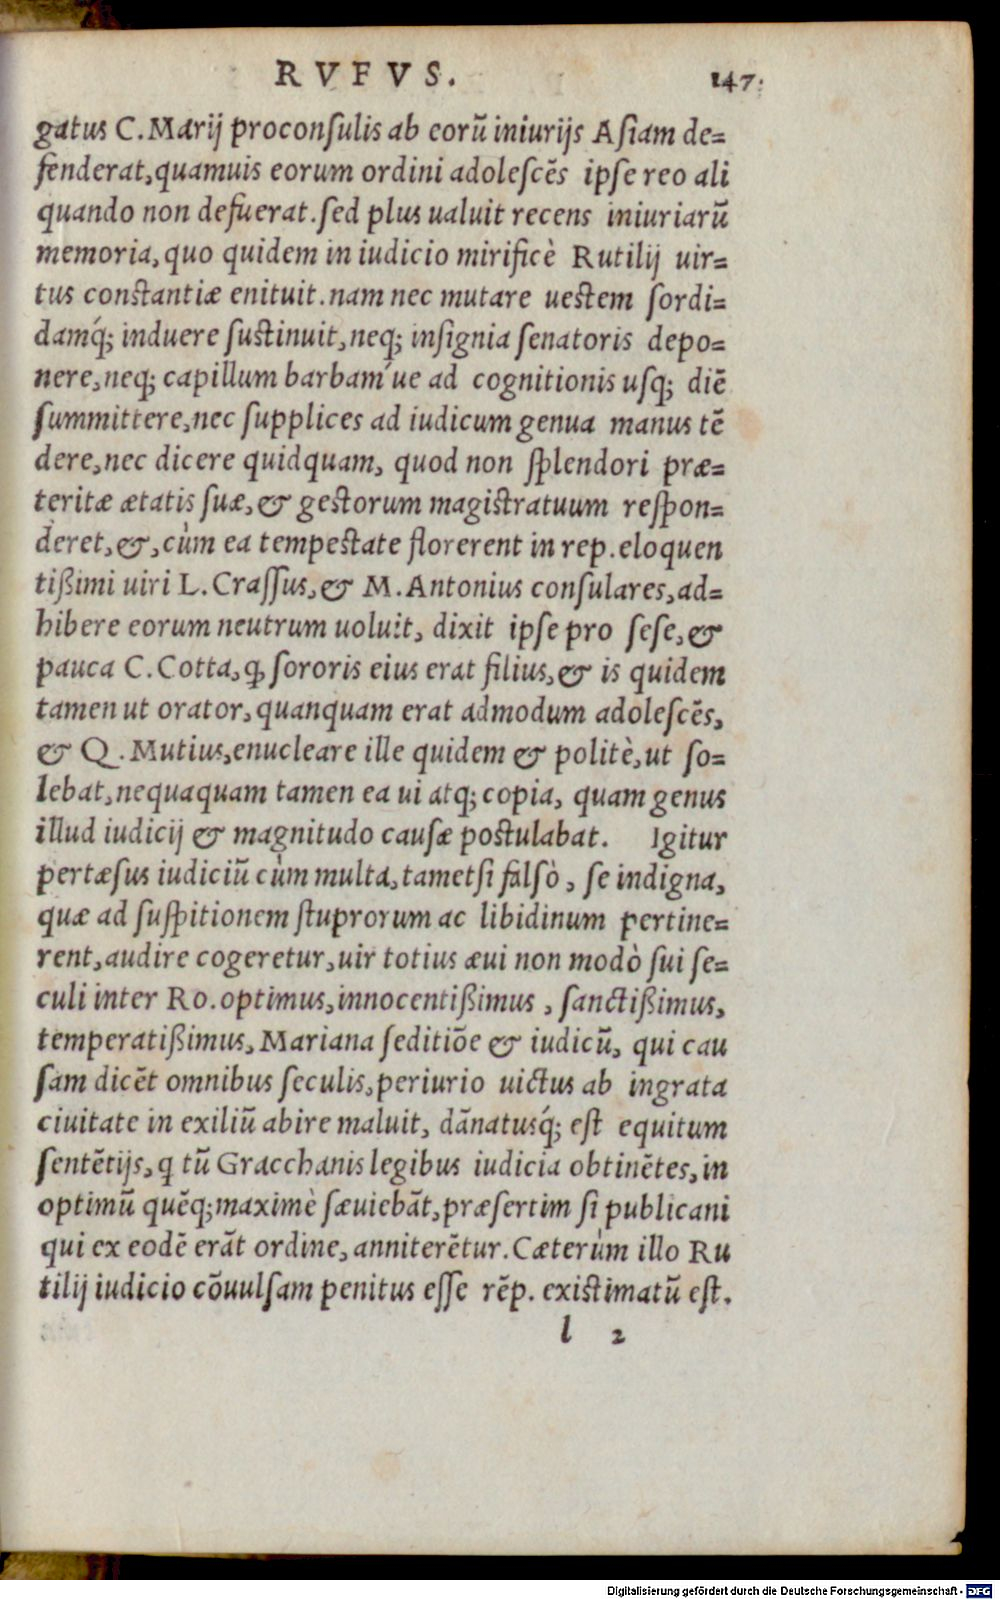 RVFVS. 147.
gatus C. Marij proconſulis ab eorũ iniurijs Aſiam de=
fenderat, quamuis eorum ordini adoleſcẽs ipſe reo ali
quando non defuerat. ſed plus ualuit recens iniuriarũ
memoria, quo quidem in iudicio mirificè Rutilij uir=
tus conſtantiæ enituit. nam nec mutare ueſtem ſordi=
damq́; induere ſuſtinuit, neq; inſignia ſenatoris depo=
nere, neq; capillum barbaḿue ad cognitionis uſq; diẽ
ſummittere, nec ſupplices ad iudicum genua manus tẽ
dere, nec dicere quidquam, quod non ſplendori præ=
teritæ ætatis ſuæ, & geſtorum magiſtratuum reſpon=
deret, &, cùm ea tempeſtate florerent in rep. eloquen
tißimi uiri L. Craſſus, & M. Antonius conſulares, ad=
hibere eorum neutrum uoluit, dixit ipſe pro ſeſe, &
pauca C. Cotta, ꝗ ſororis eius erat filius, & is quidem
tamen ut orator, quanquam erat admodum adoleſcẽs,
& Q. Mutius, enucleare ille quidem & politè, ut ſo=
lebat, nequaquam tamen ea ui atq; copia, quam genus
illud iudicij & magnitudo cauſæ poſtulabat. Igitur
pertæſus iudiciũ cùm multa, tametſi falſò, ſe indigna,
quæ ad ſuſpitionem ſtuprorum ac libidinum pertine=
rent, audire cogeretur, uir totius æui non modò ſui ſe=
culi inter Ro. optimus, innocentißimus, ſanctißimus,
temperatißimus, Mariana ſeditiõe & iudicũ, qui cau
ſam dicẽt omnibus ſeculis, periurio uictus ab ingrata
ciuitate in exiliũ abire maluit, dãnatusq́; eſt equitum
ſentẽtijs, ꝗ tũ Gracchanis legibus iudicia obtinẽtes, in
optimũ quẽq; maximè ſæuiebãt, præſertim ſi publicani
qui ex eodẽ erãt ordine, anniterẽtur. Cæterùm illo Ru
tilij iudicio cõuulſam penitus eſſe rẽp. exiſtimatũ eſt.
l 2
Digitalisierung gefördert durch die Deutsche Forschungsgemeinschaft - DFG